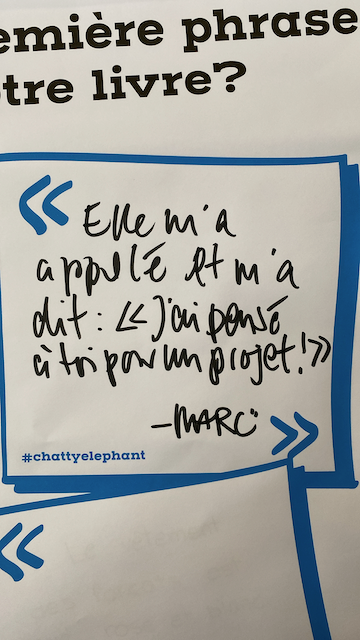 emière phrase
otre livre?
« Elle m'a
appelé et m'a
dit : « J'ai pensé
à toi pour un projet! »
– MARC »
#chattyelephant
«